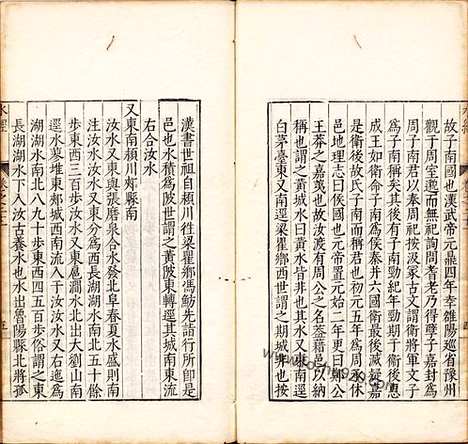 故子南國也漢武帝元鼎四年幸雒陽巡省豫州
觀于周室邈而無祀詢問耆老乃得孽子嘉封為
周子南君以奉周祀按汲冢古文謂衛將軍文子
為子南彌牟其後有子南勁紀年勁朝于魏後惠
成王如衛命子南為侯秦并六國衛最後滅疑嘉
是衛後故氏子南而稱君也初元五年為周承休
邑地理志曰侯國也元帝置元始二年更曰鄭公
王莽之嘉美也故汝渡有周公之名蓋藉邑以納
世謂之黃城水曰黃水皆非也其水又東南逕
白茅臺東又南逕梁瞿鄉西世謂之期城非也按
漢書世祖自潁川往梁瞿鄉馮魴先詣行所即是
邑也水積為陂世謂之黃陂東轉逕其城南東流
右合汝水
又東南潁川郟縣南
汝水又東與張磨泉合水發北阜春夏水盛則南
注汝水汝水又東分為西長湖湖水南北五十餘
步東西三百步汝水又東扈澗水北出大劉山南
逕水蓼堆東郟城西南流入于汝汝水又右迤為
湖湖水南北八九十步東西四五百步俗謂之東
長湖湖水下入汝古養水也水出魯陽縣北將孤
水經
卷之二十一
五